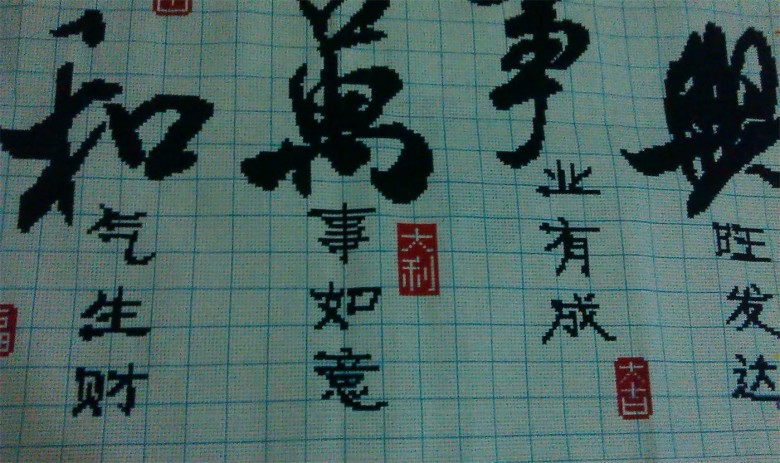 和
气生财
萬
事如意
大利
事
业有成
大吉
興
旺发达